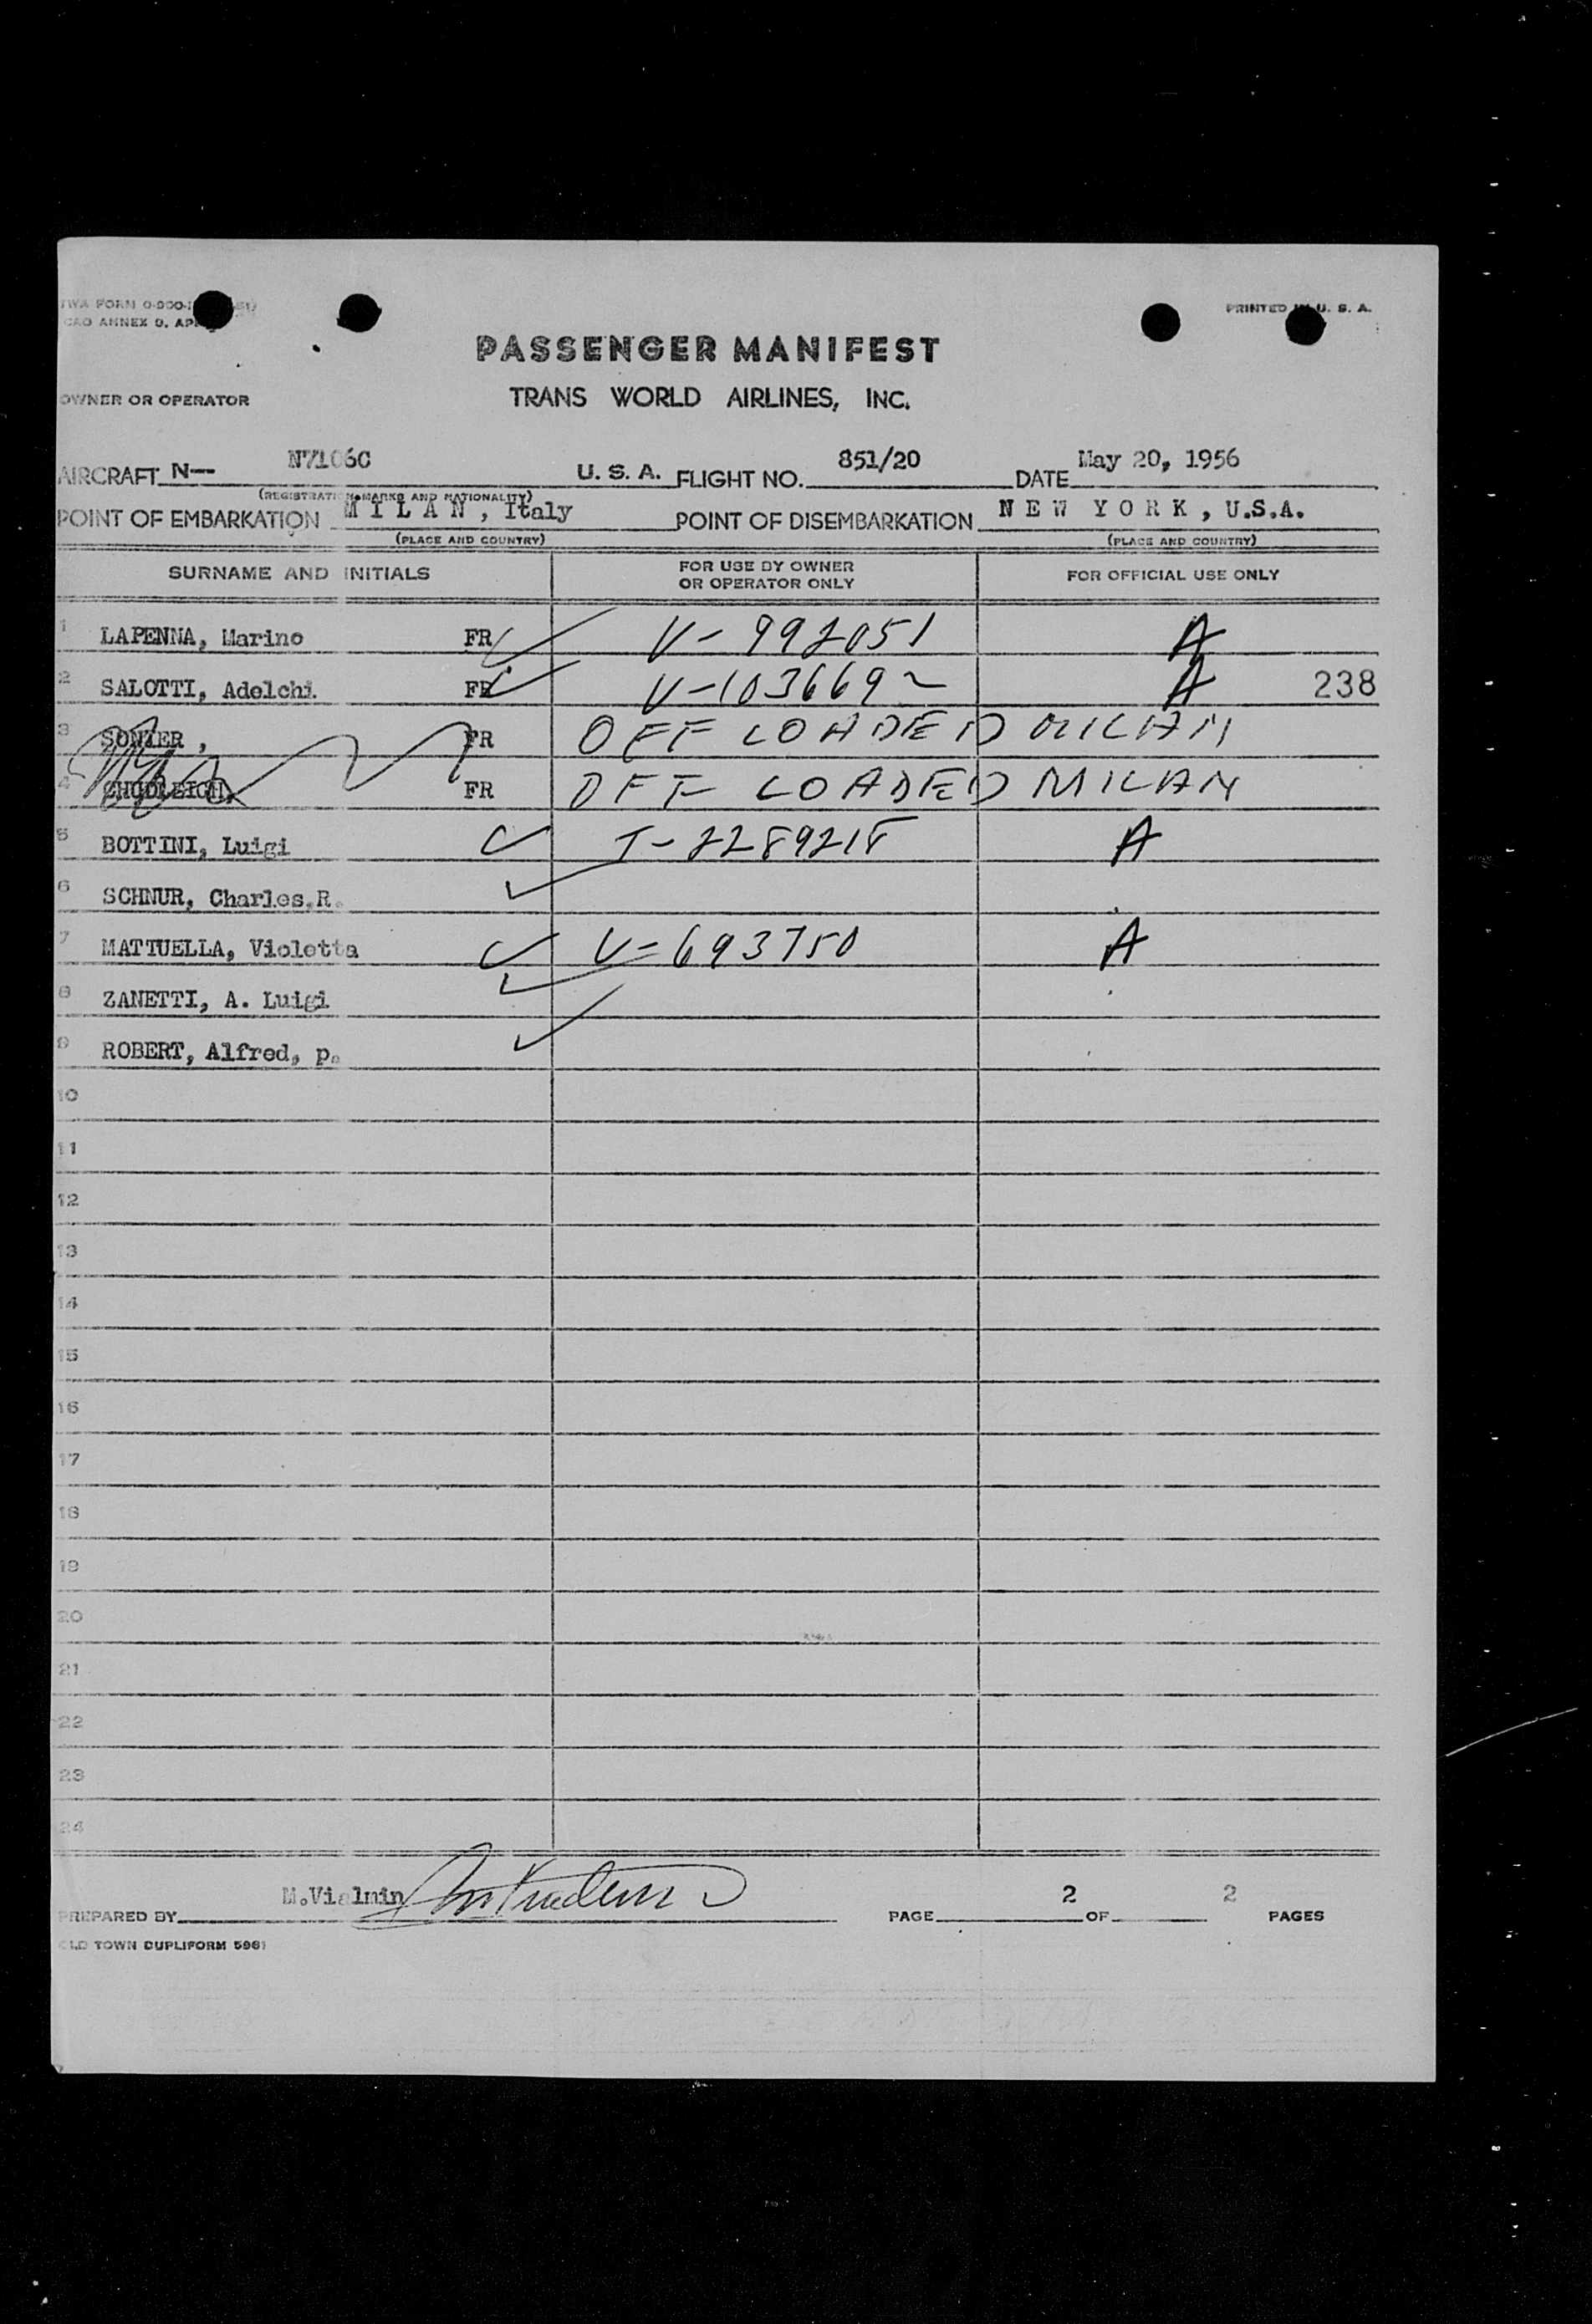 TWA FORM 0-900-
ICAO ANNEX 9, AP
PRINTED IN U. S. A.
PASSENGER MANIFEST
OWNER OR OPERATOR
TRANS WORLD AIRLINES, INC.
AIRCRAFT N— N7106C U. S. A. FLIGHT NO. 851/20 DATE May 20, 1956
(REGISTRATION MARKS AND NATIONALITY)
POINT OF EMBARKATION M I L A N , Italy POINT OF DISEMBARKATION N E W Y O R K , U.S.A.
(PLACE AND COUNTRY) (PLACE AND COUNTRY)
SURNAME AND INITIALS FOR USE BY OWNER OR OPERATOR ONLY FOR OFFICIAL USE ONLY
1 LAPENNA, Marino FR V-992051 A
2 SALOTTI, Adelchi FR V-1036692 A 238
3 FR OFF LOADED MILAN
4 FR OFF LOADED MILAN
5 BOTTINI, Luigi I-2289218 A
6 SCHNUR, Charles,R.
7 MATTUELLA, Violetta V-693750 A
8 ZANETTI, A. Luigi
9 ROBERT, Alfred, p.
10
11
12
13
14
15
16
17
18
19
20
21
22
23
24
PREPARED BY M.Vialmin PAGE 2 OF 2 PAGES
OLD TOWN DUPLIFORM 5961